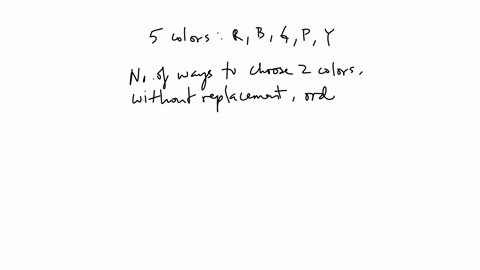 5 colors: R, B, G, P, Y
No. of ways to choose 2 colors,
without replacement, ord